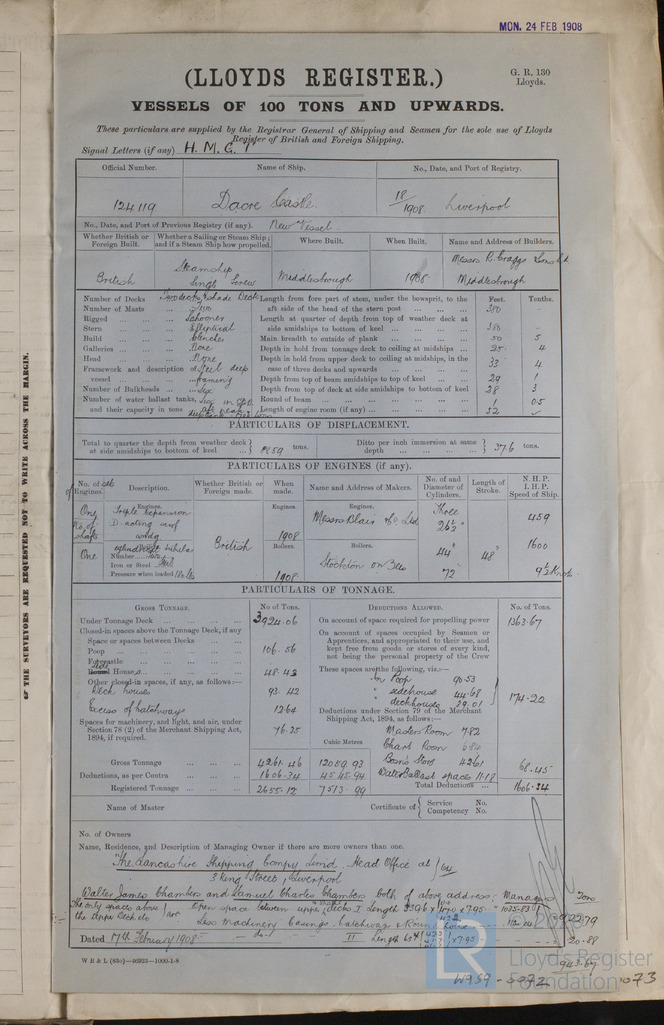 MON. 24 FEB 1908
(LLOYDS REGISTER.)
G. R. 130
Lloyds.
VESSELS OF 100 TONS AND UPWARDS.
These particulars are supplied by the Registrar General of Shipping and Seamen for the sole use of Lloyds
Register of British and Foreign Shipping.
Signal Letters (if any) H. M. G.
Official Number. Name of Ship. No., Date, and Port of Registry.
124119 Dacre Castle 18/1908 Liverpool
No., Date, and Port of Previous Registry (if any). New Vessel
Whether British or Foreign Built. Whether a Sailing or Steam Ship; and if a Steam Ship how propelled. Where Built. When Built. Name and Address of Builders.
British Steamship Single Screw Middlesbrough 1908 Messrs R. Craggs & Sons Ld Middlesbrough
Number of Decks Two decks & shade Deck Length from fore part of stem, under the bowsprit, to the Feet. Tenths.
Number of Masts Two aft side of the head of the stern post 380 -
Rigged Schooner Length at quarter of depth from top of weather deck at
Stern Elliptical side amidships to bottom of keel 380 -
Build Clencher Main breadth to outside of plank 50 5
Galleries None Depth in hold from tonnage deck to ceiling at midships 25 4
Head None Depth in hold from upper deck to ceiling at midships, in the
Framework and description of vessel Steel deep framing case of three decks and upwards 33 4
Depth from top of beam amidships to top of keel 29 1
Number of Bulkheads Six Depth from top of deck at side amidships to bottom of keel 28 3
Number of water ballast tanks, and their capacity in tons Round of beam 1 05
Length of engine room (if any) 52
PARTICULARS OF DISPLACEMENT.
Total to quarter the depth from weather deck at side amidships to bottom of keel tons. Ditto per inch immersion at same depth 37.6 tons.
PARTICULARS OF ENGINES (if any).
No. of sets of Engines. Description. Whether British or Foreign made. When made. Name and Address of Makers. No. of and Diameter of Cylinders. Length of Stroke. N. H. P. I. H. P. Speed of Ship.
Engines. Engines. Engines.
One Triple Expansion Three 459
No. of shafts 1908 Messrs Blair & Co Ld 26½"
British Boilers. Boilers. 44" 48" 1600
One Number Two
Iron or Steel Steel Stockton on Tees
Pressure when loaded 1908 72" 9½ Knots
PARTICULARS OF TONNAGE.
GROSS TONNAGE. No. of Tons. DEDUCTIONS ALLOWED. No. of Tons.
Under Tonnage Deck 3924.06 On account of space required for propelling power 1363.67
Closed-in spaces above the Tonnage Deck, if any
Space or spaces between Decks
Poop 106.56
Forecastle
Side Houses 48.43
Other closed-in spaces, if any, as follows:—
Deck house 93.42
Excess of hatchways 12.64
Spaces for machinery, and light, and air, under Section 78 (2) of the Merchant Shipping Act, 1894, if required. 76.35
On account of spaces occupied by Seamen or Apprentices, and appropriated to their use, and kept free from goods or stores of every kind, not being the personal property of the Crew
These spaces are the following, viz.:—
In Poop 90.53
" sidehouse 44.68
" deckhouses 39.01
174.22
Deductions under Section 79 of the Merchant Shipping Act, 1894, as follows:—
Masters Room 7.82
Chart Room 6.84
Bosn's Store 42.61
Water Ballast space 11.18
68.45
Cubic Metres
Gross Tonnage 4261.46 12059.93
Deductions, as per Contra 1606.34 4545.94 Total Deductions 1606.34
Registered Tonnage 2655.12 7513.99
Name of Master Certificate of Service No. Competency No.
No. of Owners
Name, Residence, and Description of Managing Owner if there are more owners than one.
The Lancashire Shipping Compy Limd. Head Office at 64
3 King Street, Liverpool
Walter James Chambers and Samuel Charles Chambers both of above address: Managers
The only spaces above the Upper Deck etc are Open space between upper & shade decks I Length
Tons
922.79
Less Machinery Casings, hatchways & Room
II Length
20.88
943.67
Dated 17th February 1908
W B & L (83o)—46923—1000-1-8
OF THE SURVEYORS ARE REQUESTED NOT TO WRITE ACROSS THE MARGIN.
Lloyd's Register
Foundation
W959-0072
073